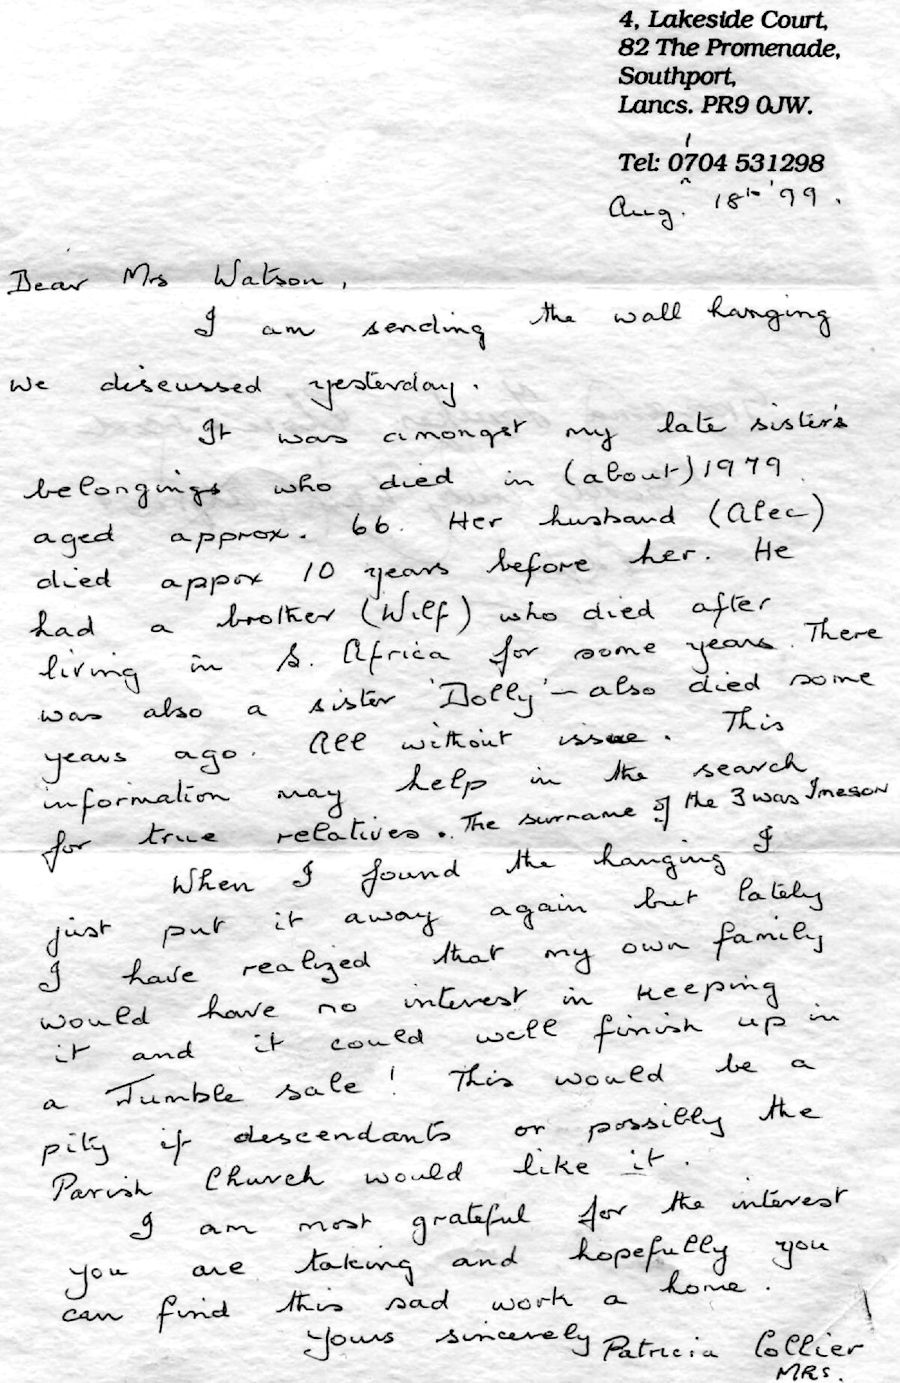 4, Lakeside Court,
82 The Promenade,
Southport,
Lancs. PR9 0JW.
1
Tel: 0704 531298
Aug. 18th '99.
Dear Mrs Watson,
I am sending the wall hanging
we discussed yesterday.
It was amongst my late sister's
belongings who died in (about) 1979
aged approx. 66. Her husband (Alec)
died appox 10 years before her. He
had a brother (Wilf) who died after
living in S. Africa for some years. There
was also a sister 'Dolly' - also died some
years ago. All without issue. This
information may help in the search
for true relatives. The surname of the 3 was Imeson
When I found the hanging I
just put it away again but lately
I have realized that my own family
would have no interest in keeping
it and it could well finish up in
a Jumble sale! This would be a
pity if descendants or possilly the
Parish Church would like it.
I am most grateful for the interest
you are taking and hopefully you
can find this sad work a home.
Yours sincerely Patricia Collier
MRS.